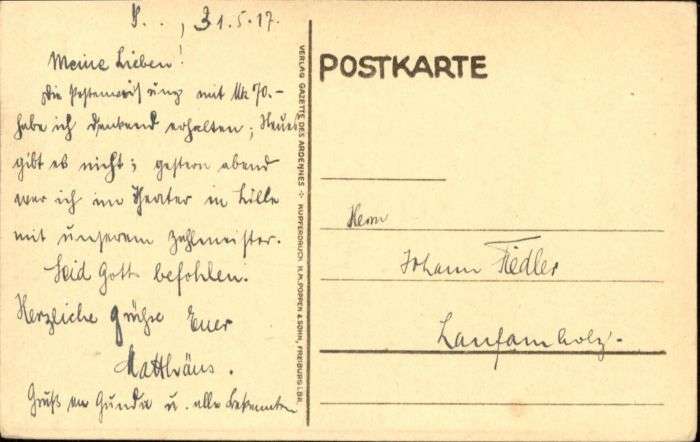 P. . , 31.5.17.
Meine Lieben!
Die Postanweisung mit Mk 70.-
habe ich dankend erhalten; Neues
gibt es nicht; gestern abend
war ich im Theater in Lille
mit unserem Zahlmeister.
Seid Gott befohlen.
Herzliche Grüße Euer
Matthäus.
Gruß an Gunda u. alle Bekannten
VERLAG GAZETTE DES ARDENNES ÷ KUPFERDRUCK H.M. POPPEN & SOHN, FREIBURG I.BR.
POSTKARTE
Herrn
Johann Fiedler
Laufamholz.